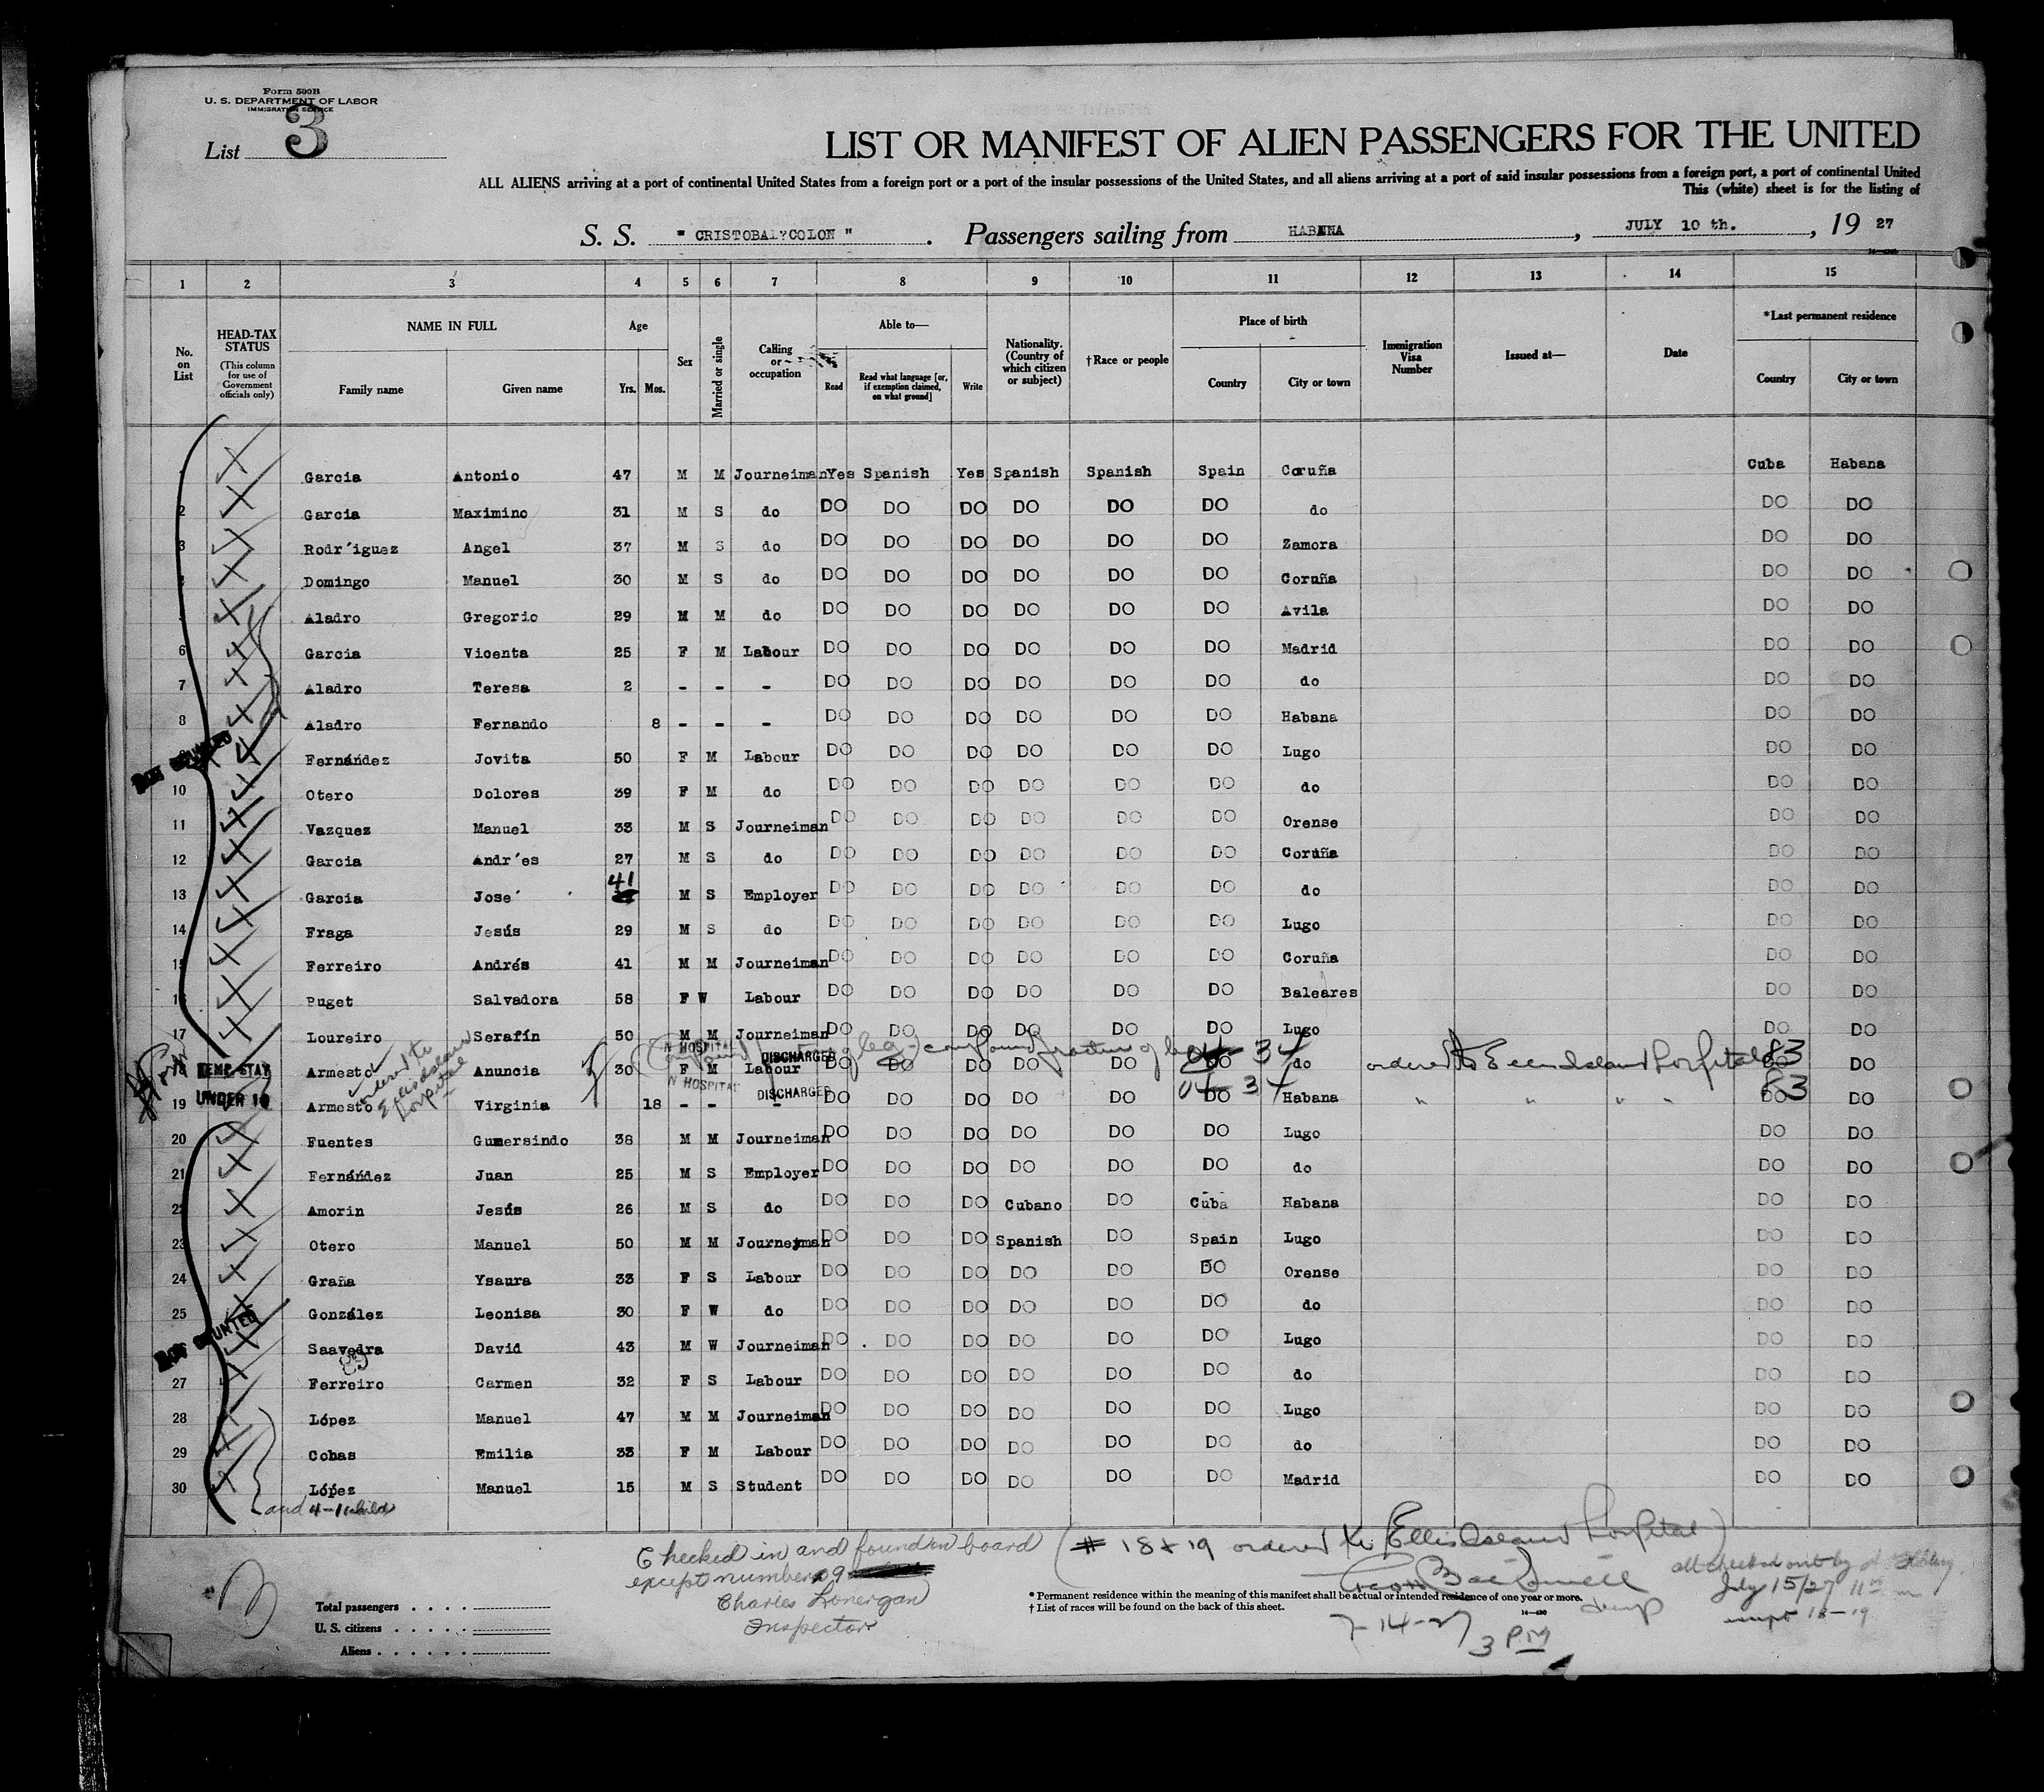 Form 500B
U. S. DEPARTMENT OF LABOR
IMMIGRATION SERVICE
List 3
LIST OR MANIFEST OF ALIEN PASSENGERS FOR THE UNITED
ALL ALIENS arriving at a port of continental United States from a foreign port or a port of the insular possessions of the United States, and all aliens arriving at a port of said insular possessions from a foreign port, a port of continental United
This (white) sheet is for the listing of
S. S. " CRISTOBAL COLON " . Passengers sailing from HABANA , JULY 10 th. , 19 27
1 2 3 4 5 6 7 8 9 10 11 12 13 14 15
No. on List
HEAD-TAX STATUS
(This column for use of Government officials only)
NAME IN FULL
Family name Given name
Age
Yrs. Mos.
Sex
Married or single
Calling or occupation
Able to—
Read
Read what language [or, if exemption claimed, on what ground]
Write
Nationality. (Country of which citizen or subject)
†Race or people
Place of birth
Country City or town
Immigration Visa Number
Issued at—
Date
*Last permanent residence
Country City or town
Garcia Antonio 47 M M Journeiman Yes Spanish Yes Spanish Spanish Spain Coruña Cuba Habana
2 Garcia Maximino 31 M S do DO DO DO DO DO DO do DO DO
3 Rodr´iguez Angel 37 M S do DO DO DO DO DO DO Zamora DO DO
Domingo Manuel 30 M S do DO DO DO DO DO DO Coruña DO DO
Aladro Gregorio 29 M M do DO DO DO DO DO DO Avila DO DO
6 Garcia Vicenta 25 F M Labour DO DO DO DO DO DO Madrid DO DO
7 Aladro Teresa 2 - - - DO DO DO DO DO DO do DO DO
8 Aladro Fernando 8 - - - DO DO DO DO DO DO Habana DO DO
Fernández Jovita 50 F M Labour DO DO DO DO DO DO Lugo DO DO
10 Otero Dolores 39 F M do DO DO DO DO DO DO do DO DO
11 Vazquez Manuel 33 M S Journeiman DO DO DO DO DO DO Orense DO DO
12 Garcia Andr´es 27 M S do DO DO DO DO DO DO Coruña DO DO
13 Garcia Jose´ 41 M S Employer DO DO DO DO DO DO do DO DO
14 Fraga Jesús 29 M S do DO DO DO DO DO DO Lugo DO DO
15 Ferreiro Andrés 41 M M Journeiman DO DO DO DO DO DO Coruña DO DO
16 Puget Salvadora 58 F W Labour DO DO DO DO DO DO Baleares DO DO
17 Loureiro Serafín 50 M M Journeiman DO DO DO DO DO DO Lugo DO DO
IN HOSPITAL DISCHARGED compound fracture of leg
ordered to Ellis Island hospital
18 TEMP STAY Armesto Anuncia 30 F M Labour DO DO DO DO DO DO do ordered to Ellis Island Hospital 83 DO DO
IN HOSPITAL DISCHARGED
19 UNDER 16 Armesto Virginia 18 - - - DO DO DO DO DO DO Habana " " " " 83 DO DO
20 Fuentes Gumersindo 38 M M Journeiman DO DO DO DO DO DO Lugo DO DO
21 Fernández Juan 25 M S Employer DO DO DO DO DO DO do DO DO
22 Amorin Jesús 26 M S do DO DO DO Cubano DO Cuba Habana DO DO
23 Otero Manuel 50 M M Journeyman DO DO DO Spanish DO Spain Lugo DO DO
24 Graña Ysaura 33 F S Labour DO DO DO DO DO DO Orense DO DO
25 González Leonisa 30 F W do DO DO DO DO DO DO do DO DO
Saavedra David 43 M W Journeiman DO DO DO DO DO DO Lugo DO DO
27 Ferreiro Carmen 32 F S Labour DO DO DO DO DO DO do DO DO
28 López Manuel 47 M M Journeiman DO DO DO DO DO DO Lugo DO DO
29 Cobas Emilia 33 F M Labour DO DO DO DO DO DO do DO DO
30 López Manuel 15 M S Student DO DO DO DO DO DO Madrid DO DO
and 4-1 child
Checked in and found on board
except number 9
Charles Lonergan
Inspector
(# 18 & 19 ordered to Ellis Island Hospital)
July 15/27
except 18-19
* Permanent residence within the meaning of this manifest shall be actual or intended residence of one year or more.
† List of races will be found on the back of this sheet.
7-14-27
3 PM
Total passengers . . . .
U. S. citizens . . . . .
Aliens . . . . . .